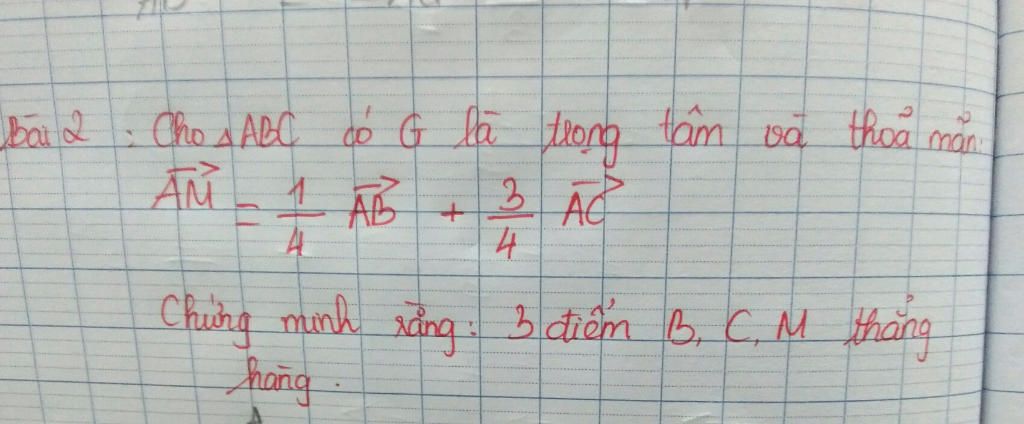 Bài 2 : Cho △ABC có G là trọng tâm và thoả mãn:
$\overrightarrow{AM} = \frac{1}{4} \overrightarrow{AB} + \frac{3}{4} \overrightarrow{AC}$
Chứng minh rằng: 3 điểm B, C, M thẳng
hàng.